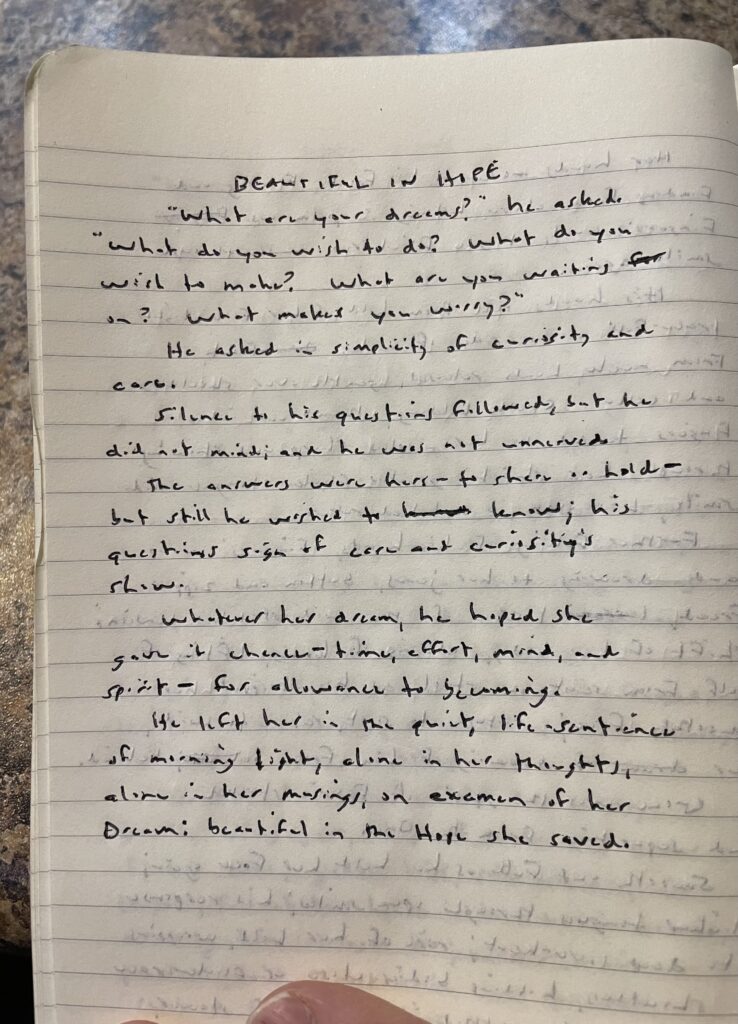 BEAUTIFUL IN HOPE
"What are your dreams?" he asked.
"What do you wish to do? What do you
wish to make? What are you waiting for
on? What makes you worry?"
He asked in simplicity of curiosity and
care.
Silence to his questions followed, but he
did not mind; and he was not unnerved.
The answers were hers - to share or hold -
but still he wished to know; his
questions sign of care and curiosity's
show.
Whatever her dream, he hoped she
gave it chance - time, effort, mind, and
spirit - for allowance to becoming.
He left her in the quiet, life-sentience
of morning light, alone in her thoughts,
alone in her musings, on examen of her
Dream: beautiful in the Hope she saved.